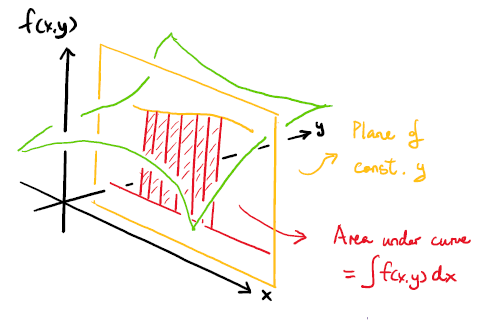 f(x,y)
y
Plane of
const. y
Area under curve
= ∫f(x,y) dx
x